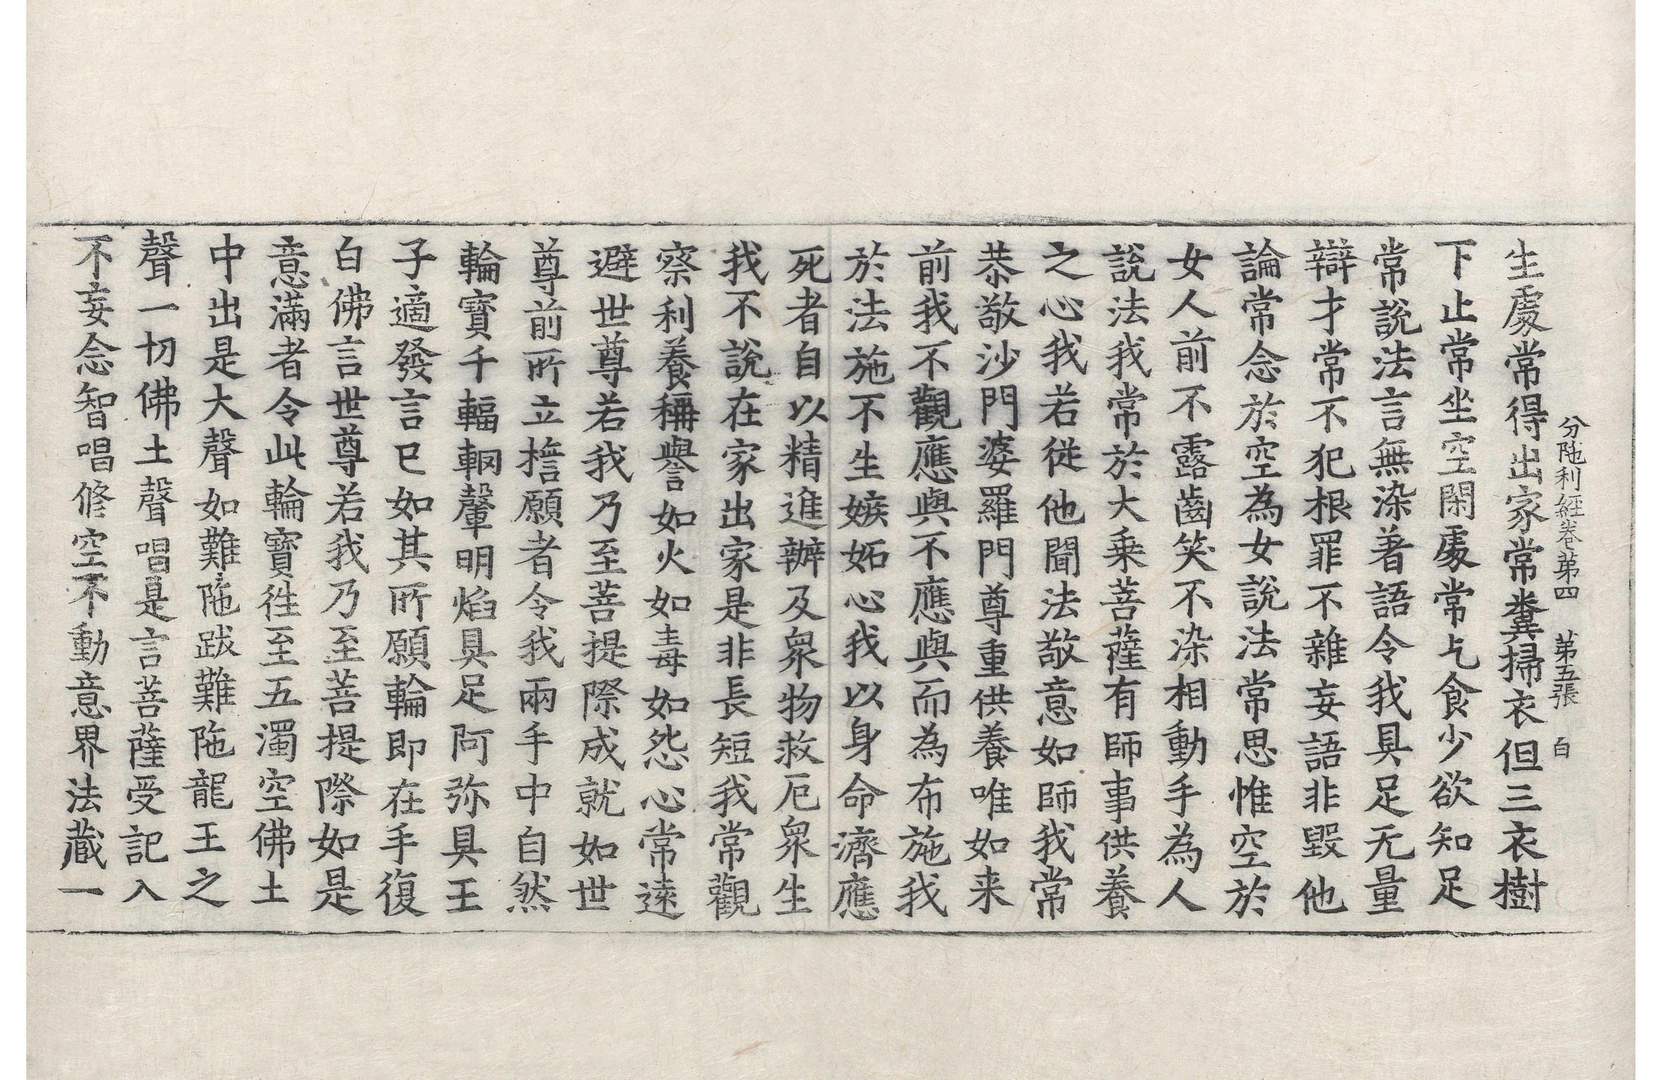 分陁利經卷第四　第五張　白
生處常得出家常糞掃衣但三衣樹
下止常坐空閑處常乞食少欲知足
常說法言無染著語令我具足无量
辯才常不犯根罪不雜妄語非毀他
論常念於空為女說法常思惟空於
女人前不露齒笑不染相動手為人
說法我常於大乗菩薩有師事供養
之心我若從他聞法敬意如師我常
恭敬沙門婆羅門尊重供養唯如来
前我不觀應與不應與而為布施我
於法施不生嫉妬心我以身命濟應
死者自以精進辦及衆物救厄衆生
我不說在家出家是非長短我常觀
察利養稱譽如火如毒如怨心常遠
避世尊若我乃至菩提際成就如世
尊前所立擔願者令我兩手中自然
輪寶千輻輞𨏩明焰具足阿弥具王
子適發言已如其所願輪即在手復
白佛言世尊若我乃至菩提際如是
意滿者令此輪寶徃至五濁空佛土
中出是大聲如難陁跋難陁龍王之
聲一切佛土聲唱是言菩薩受記入
不妄念智唱修空不動意界法藏一